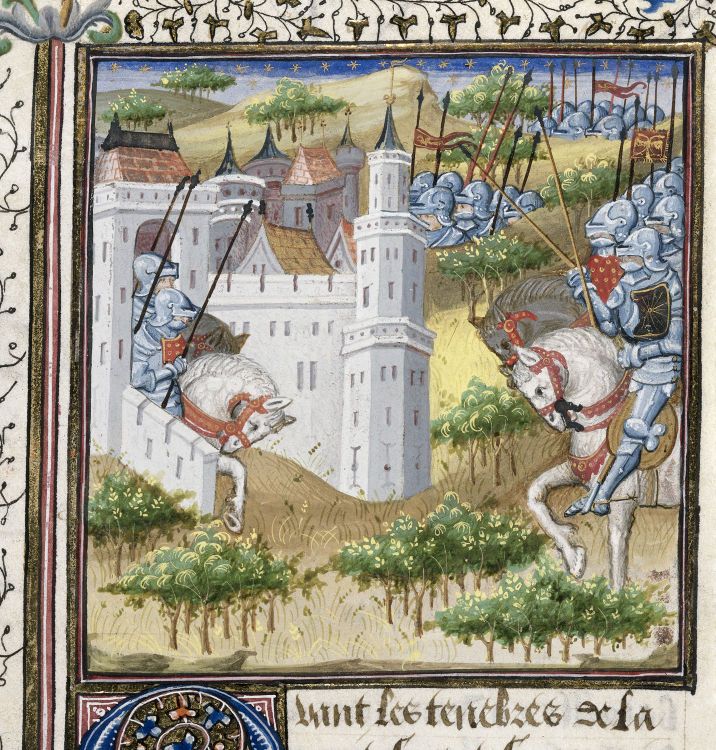 Quant les tenebres de la